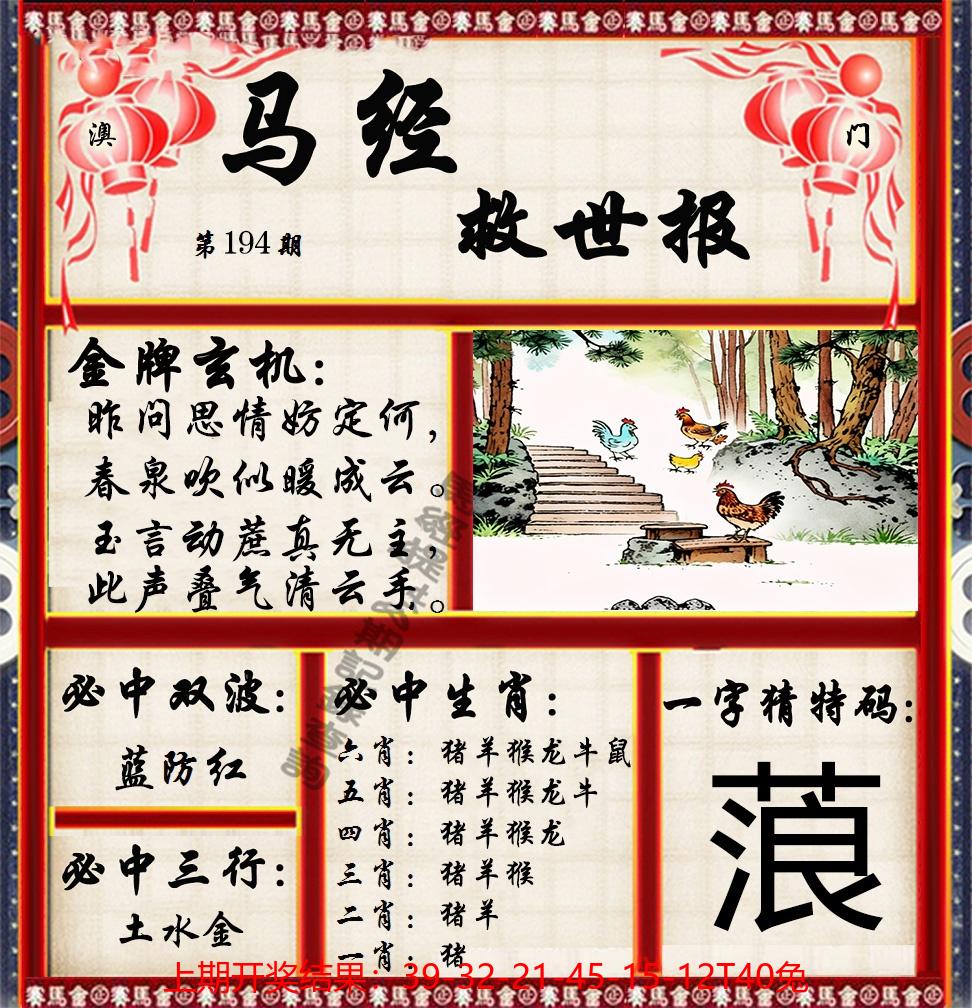 澳
门
马经
救世报
第194期
金牌玄机：
昨问思情妨定何，
春泉吹似暖成云。
玉言动蔗真无主，
此声叠气清云手。
必中双波：
蓝防红
必中三行：
土水金
必中生肖：
六肖：猪羊猴龙牛鼠
五肖：猪羊猴龙牛
四肖：猪羊猴龙
三肖：猪羊猴
二肖：猪羊
一肖：猪
一字猜特码：
蒗
上期开奖结果：39-32-21-45-15-12T40兔